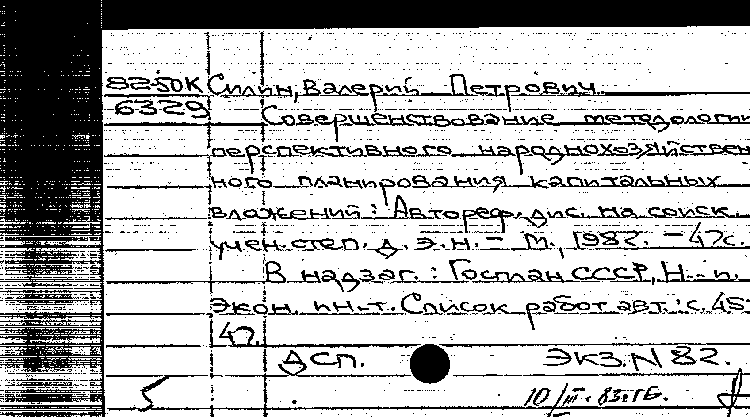 82-50К Силин, Валерий Петрович.
6329 Совершенствование методологии
перспективного народнохозяйствен
ного планирования капитальных
вложений: Автореф. дис. на соиск.
учен. степ. д. э. н. - М., 1982. - 47с.
В надзаг.: Госплан СССР, Н.-и.
экон. ин-т. Список работ авт.: с. 45-
47.
Дсп. Экз. N 82.
5 10/III-83г.